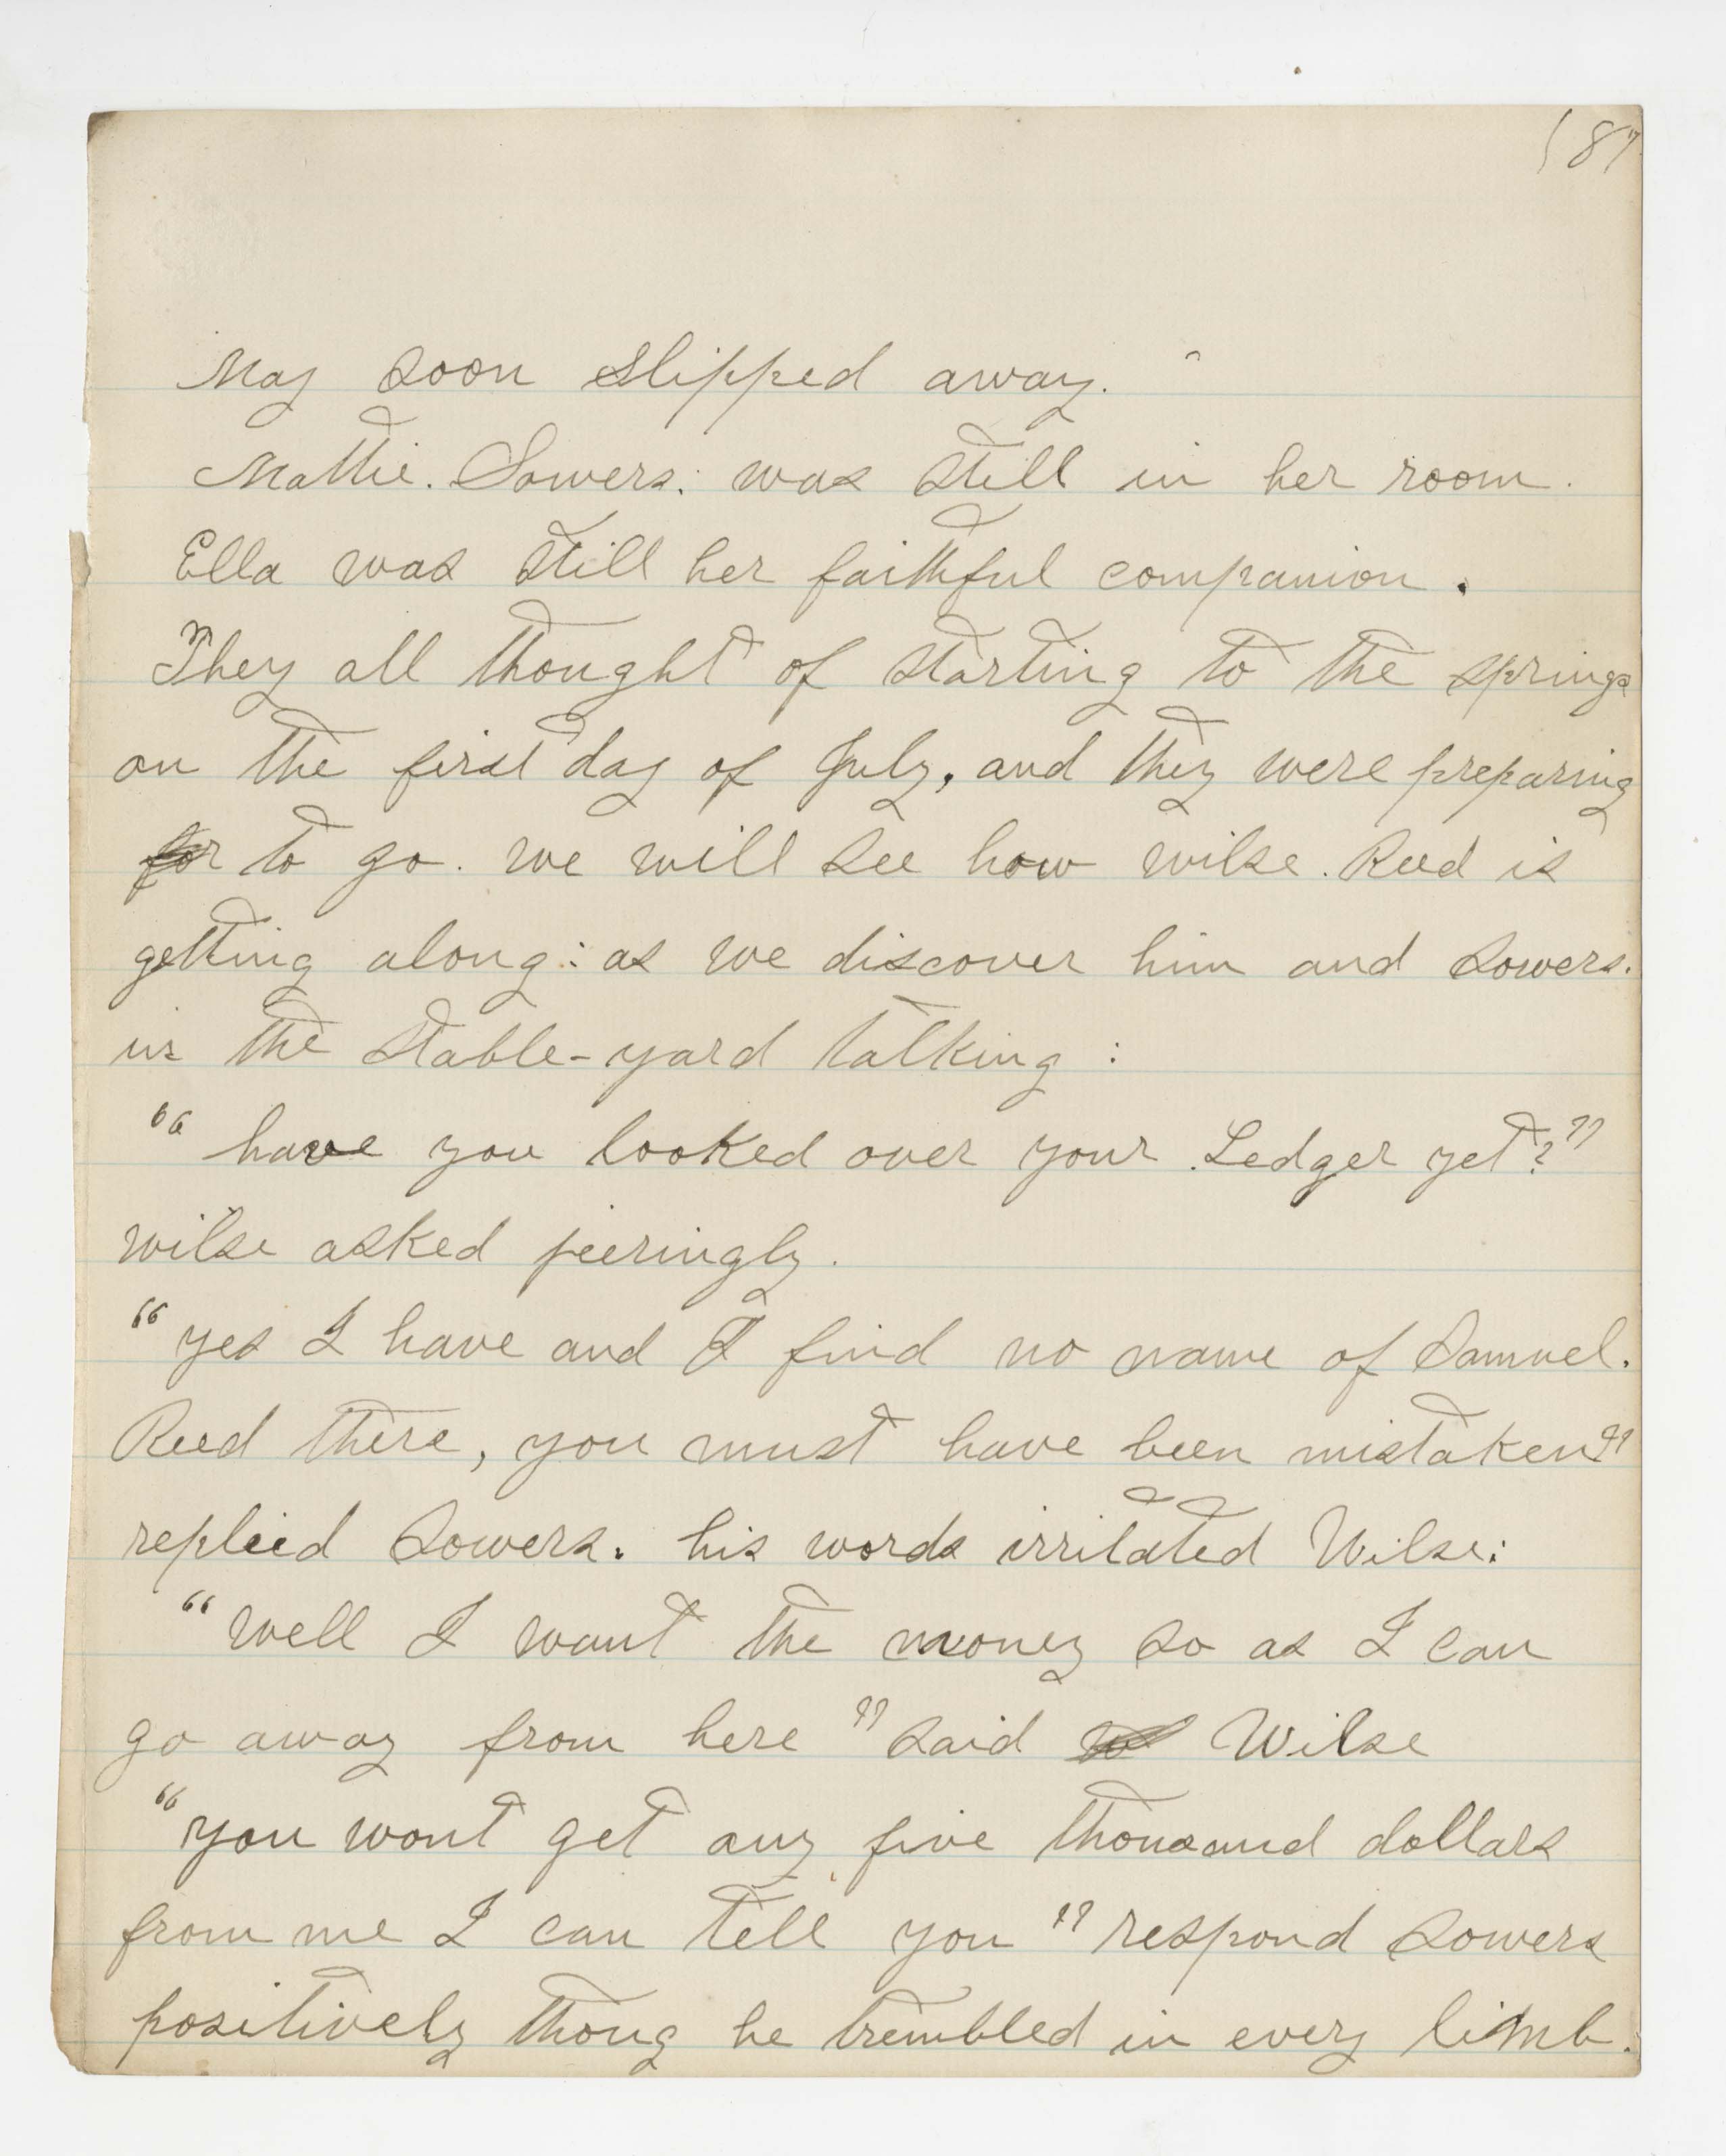 187
May soon slipped away.
Mattie. Sowers. was still in her room.
Ella was still her faithful companion.
They all thought of starting to the springs
on the first day of July, and they were preparing
for to go. we will see how wilse. Reed is
getting along: as we discover him and Sowers.
in the stable-yard talking:
"have you looked over your Ledger yet?"
wilse asked jeeringly.
"yes I have and I find no name of Samuel.
Reed there, you must have been mistaken"
replied Sowers. his words irritated Wilse:
"well I want the money so as I can
go away from here" said Wilse
"you wont get any five thousand dollars
from me I can tell you" respond Sowers
positively thoug he trembled in every limb.